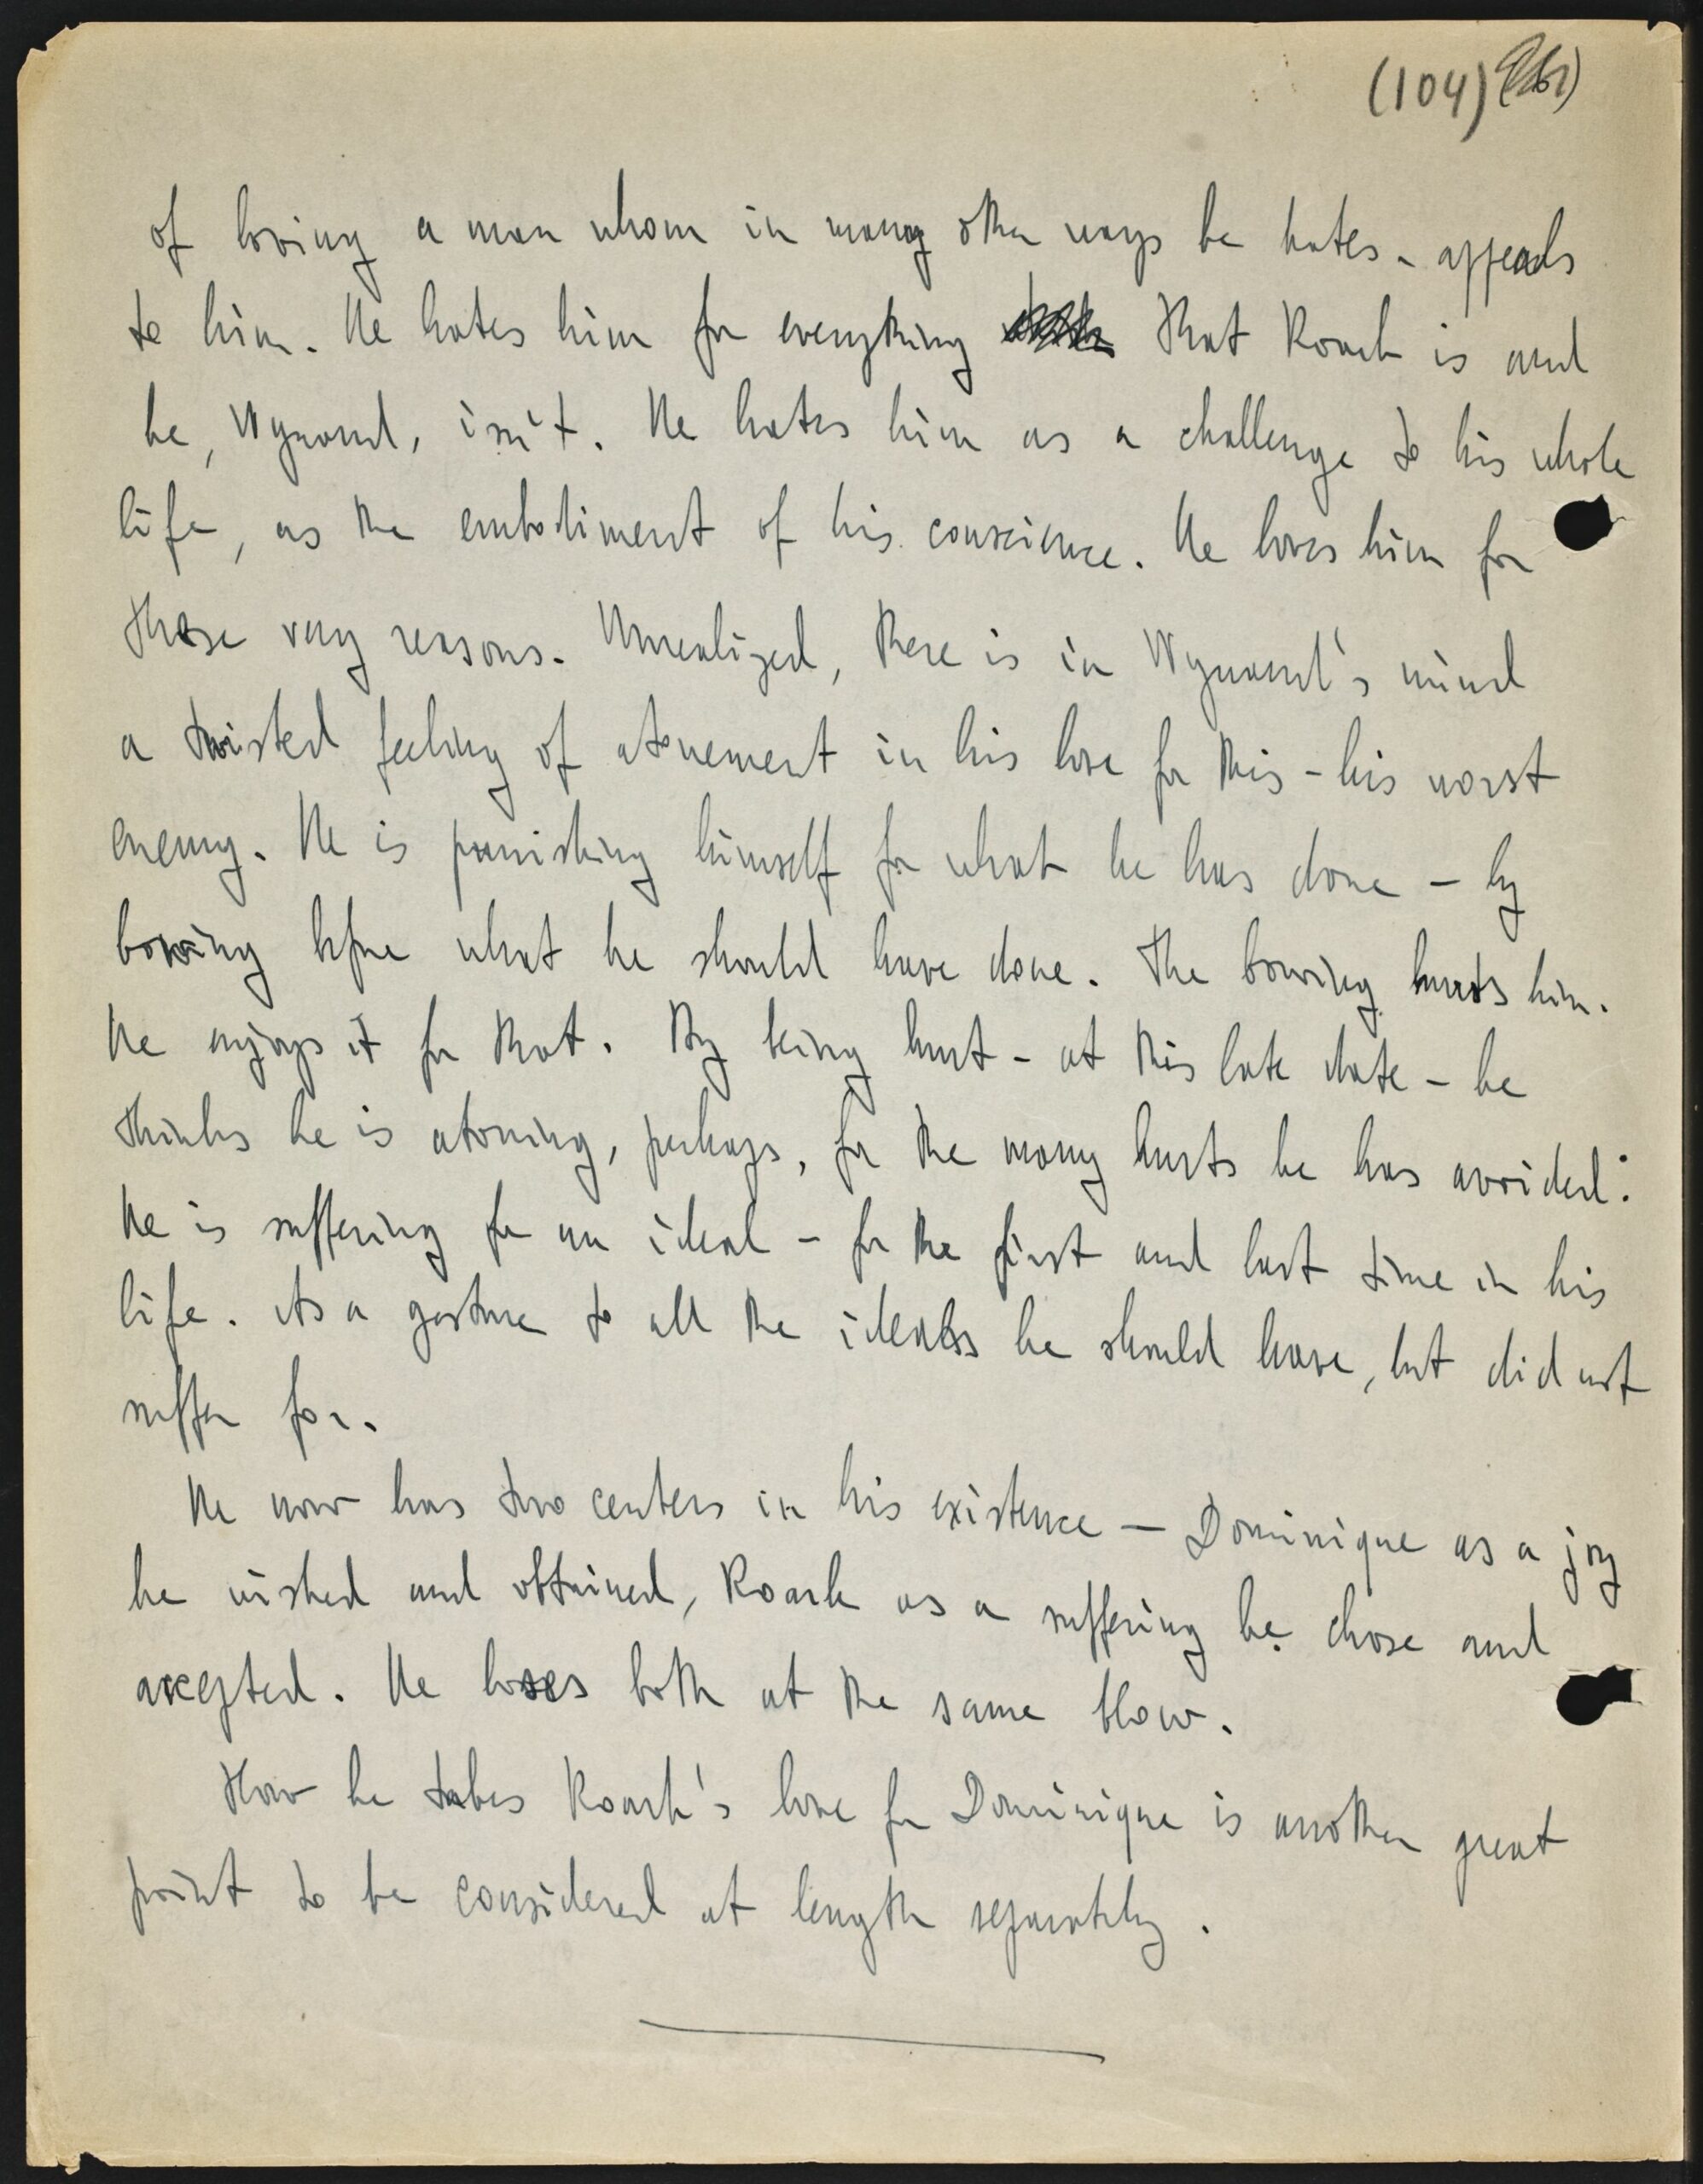 (104)
of loving a man whom in many other ways he hates - appeals
to him. He hates him for everything that Roark is and
he, Wynand, isn't. He hates him as a challenge to his whole
life, as the embodiment of his conscience. He loves him for
these very reasons. Unrealized, there is in Wynand's mind
a twisted feeling of atonement in his love for this - his worst
enemy. He is punishing himself for what he has done - by
bowing before what he should have done. The bowing hurts him.
He enjoys it for that. By being hurt - at this late date - he
thinks he is atoning, perhaps, for the many hurts he has avoided:
He is suffering for an ideal - for the first and last time in his
life. As a gesture to all the ideals he should have, but did not
suffer for.
He now has two centers in his existence — Dominique as a joy
he wished and obtained, Roark as a suffering he chose and
accepted. He loses both at the same blow.
How he takes Roark's love for Dominique is another great
point to be considered at length separately.